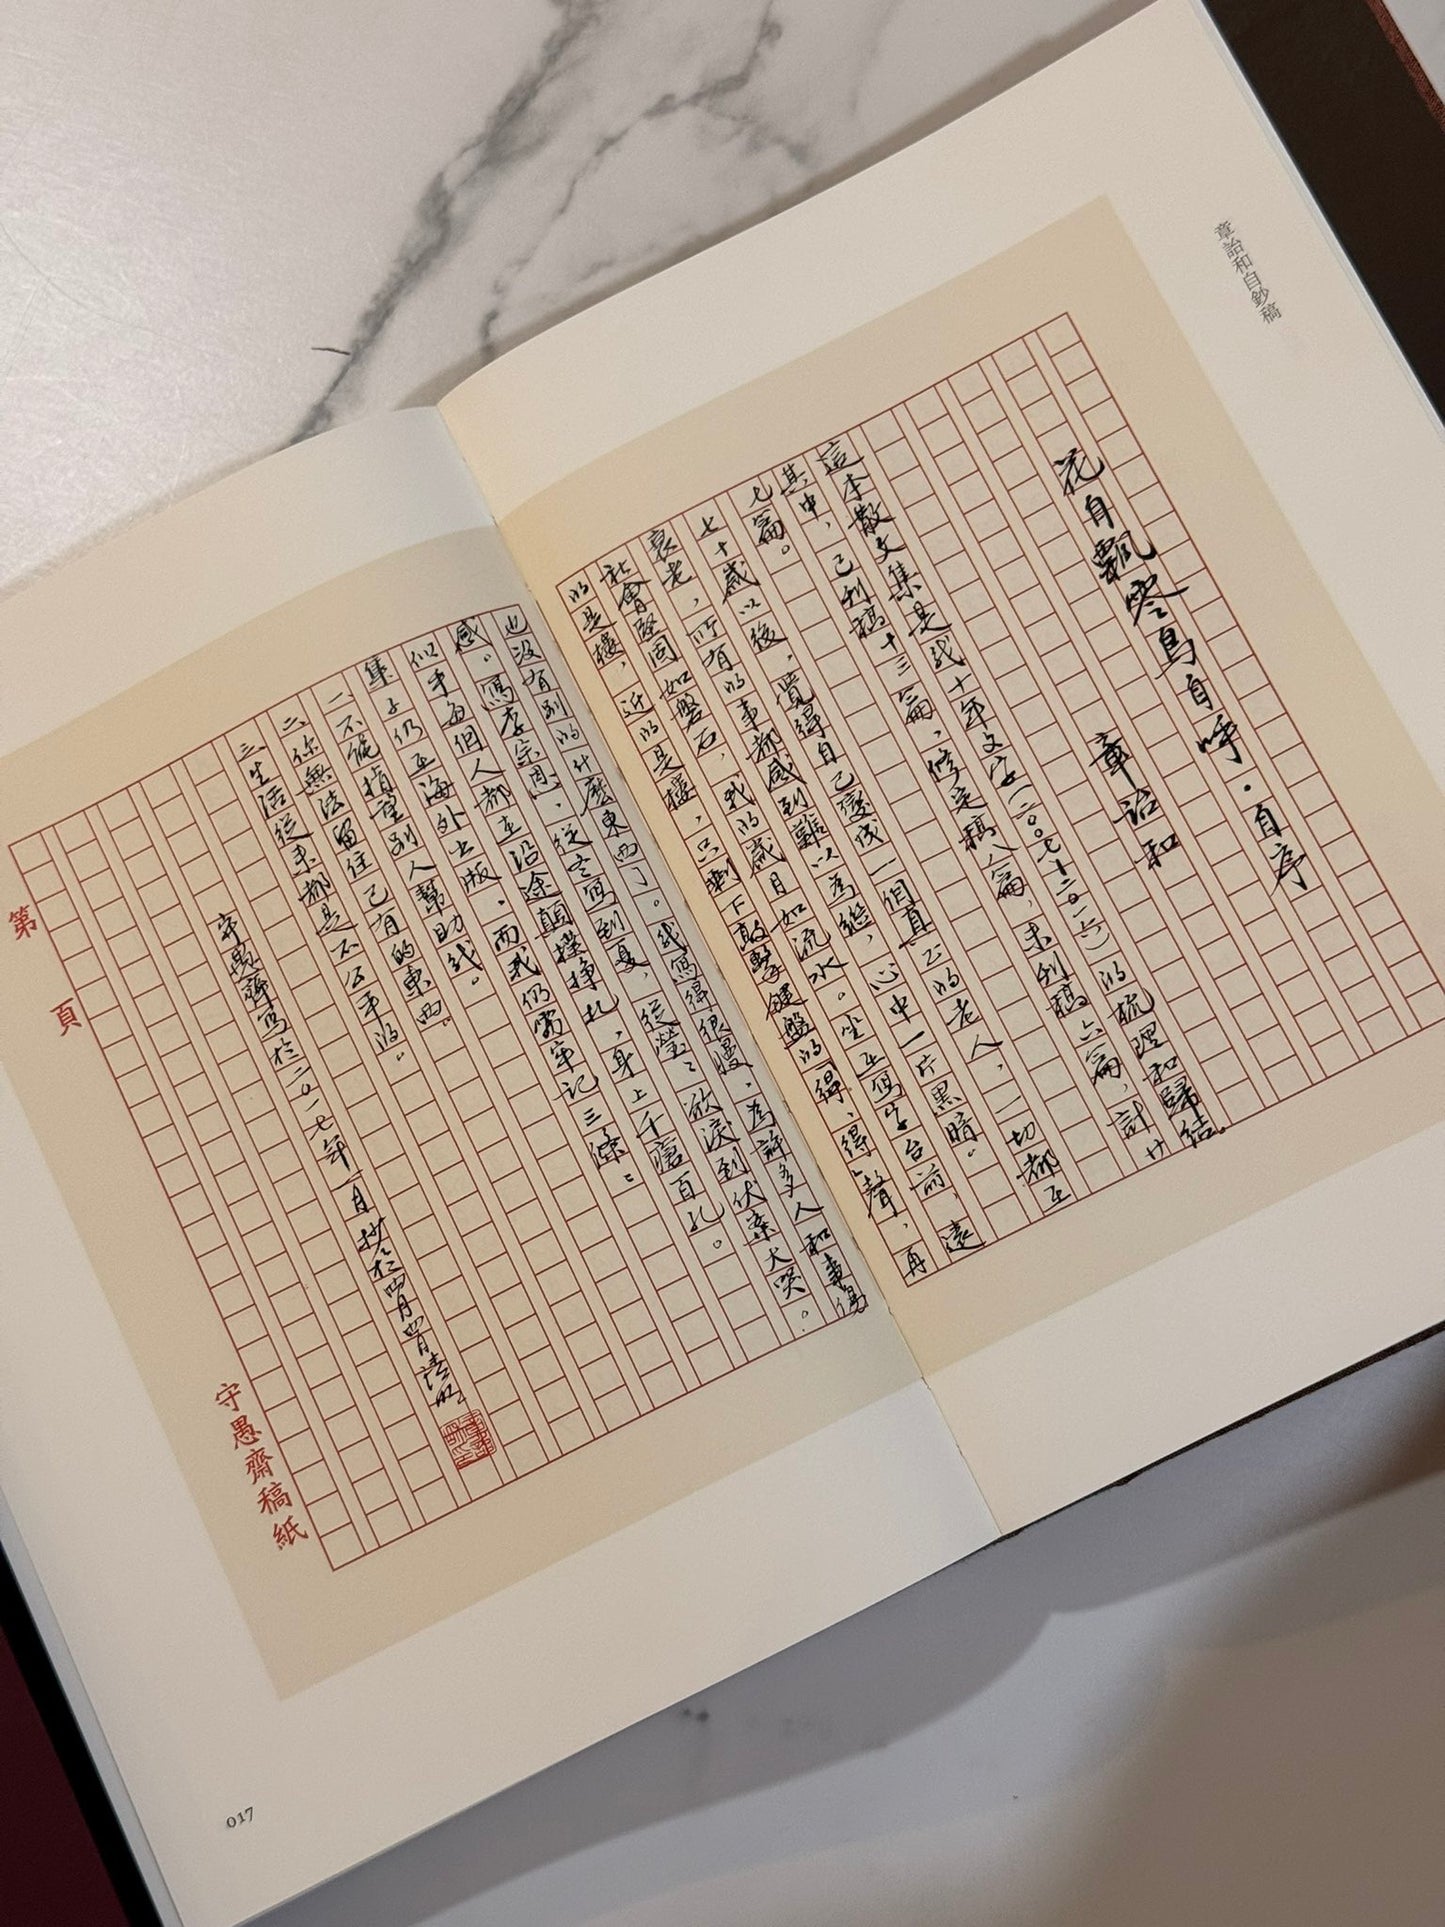 章詒和自鈔稿
花自飄零鳥自呼·自序
章詒和
這本散文集是我十年文字(二〇〇七—二〇一六)的梳理和歸結。
其中,已刊稿十三篇,修定稿八篇,未刊稿六篇,計廿
七篇。
七十歲以後,覺得自己變成一個真正的老人,一切都在
衰老,所有的事都感到難以為繼,心中一片黑暗。
社會堅固如磐石,我的歲月如流水。坐在寫字台前,遠
的是樓,近的是樓,只剩下敲擊鍵盤的「得、得」聲,再
也沒有別的什麼東西了。我寫得很慢,為許多人和事傷
感。寫李宗恩,從冬寫到夏,從瑩瑩欲淚到伏案大哭。
似乎每個人都在沿途顛撲掙扎,身上千瘡百孔。
集子仍在海外出版,而我仍需牢記三條:
一、不能指望別人幫助我。
二、你無法留住已有的東西。
三、生活從來都是不公平的。
守愚齋寫於二〇一七年一月抄於
第 頁
守愚齋稿紙
017